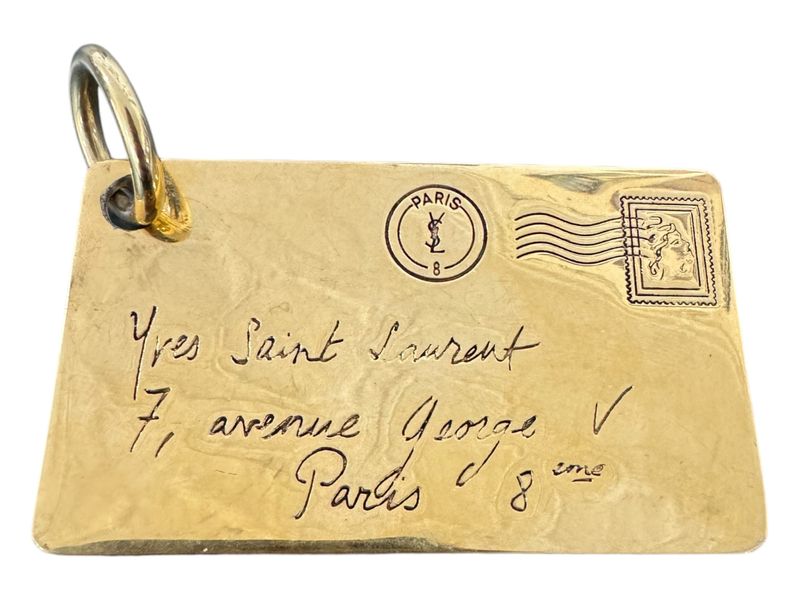 PARIS
YSL
8
Yves Saint Laurent
7, avenue George V
Paris 8eme